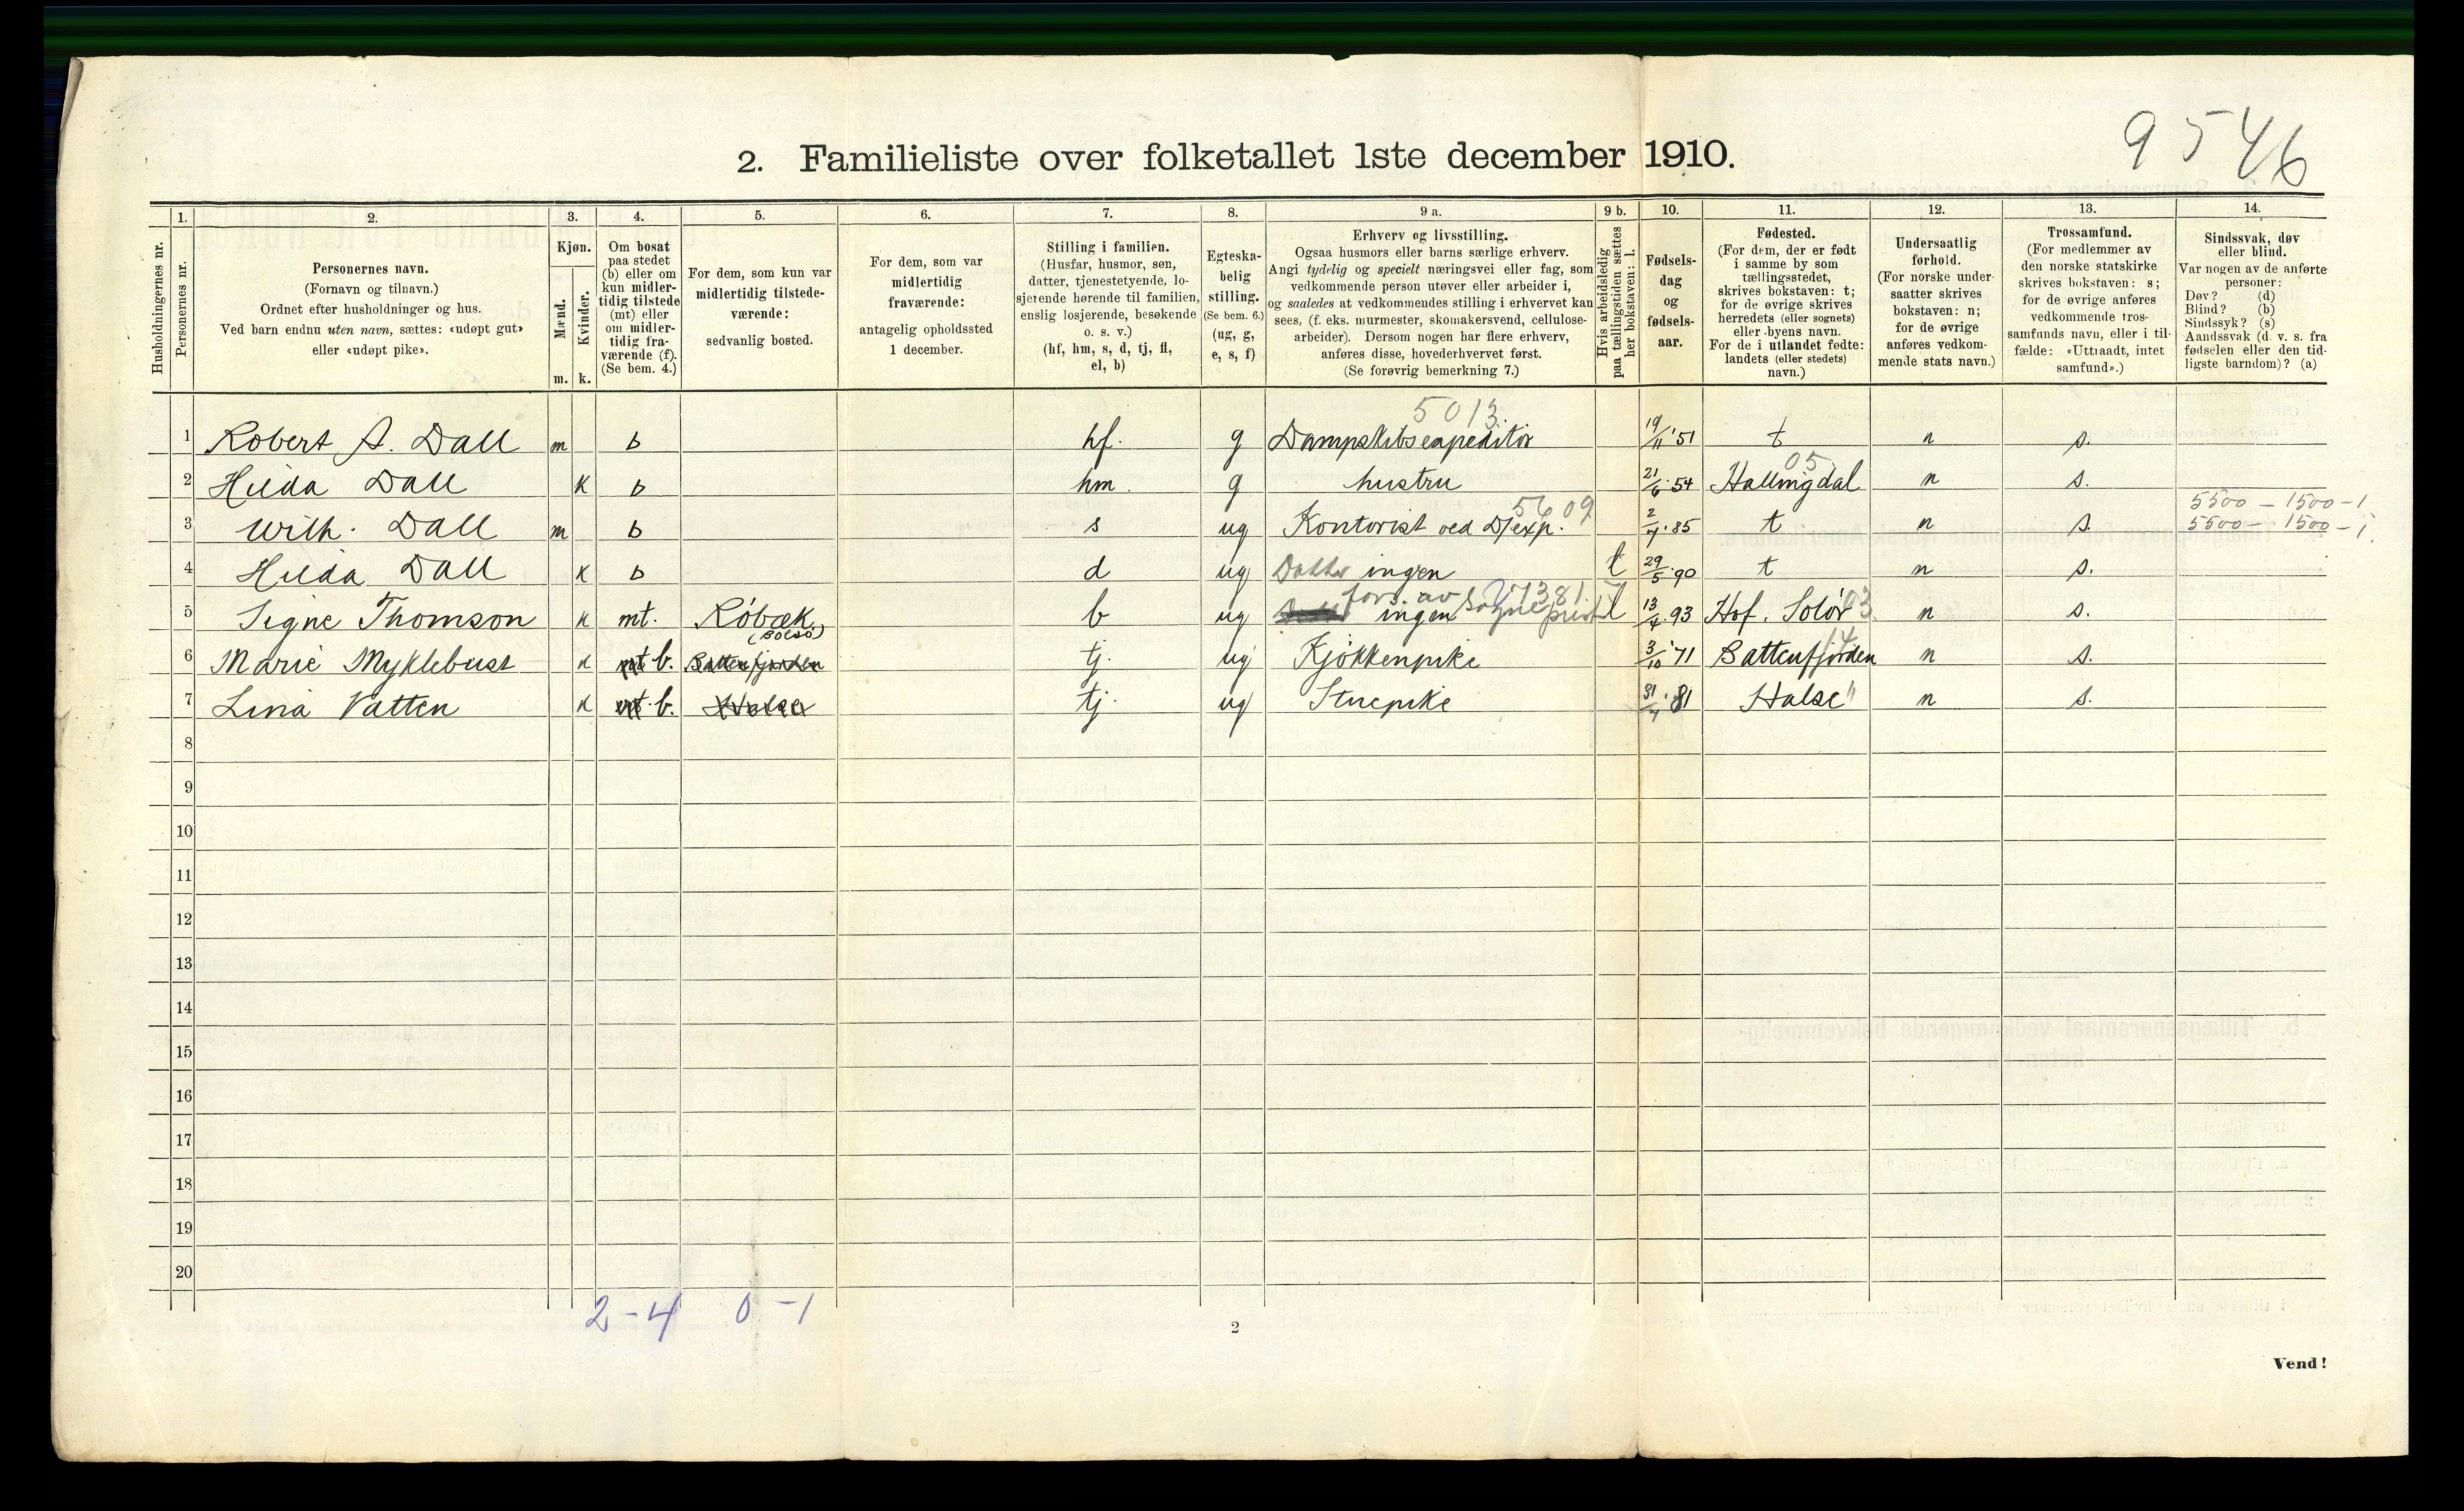 9546
2. Familieliste over folketallet 1ste december 1910.
Husholdningernes nr.
1. Personernes nr.
2. Personernes navn. (Fornavn og tilnavn.) Ordnet efter husholdninger og hus. Ved barn endnu uten navn, sættes: «udøpt gut» eller «udøpt pike».
3. Kjøn. Mænd. m. Kvinder. k.
4. Om bosat paa stedet (b) eller om kun midlertidig tilstede (mt) eller om midlertidig fraværende (f). (Se bem. 4.)
5. For dem, som kun var midlertidig tilstedeværende: sedvanlig bosted.
6. For dem, som var midlertidig fraværende: antagelig opholdssted 1 december.
7. Stilling i familien. (Husfar, husmor, søn, datter, tjenestetyende, losjerende hørende til familien, enslig losjerende, besøkende o. s. v.) (hf, hm, s, d, tj, fl, el, b)
8. Egteskabelig stilling. (Se bem. 6.) (ug, g, e, s, f)
9 a. Erhverv og livsstilling. Ogsaa husmors eller barns særlige erhverv. Angi tydelig og specielt næringsvei eller fag, som vedkommende person utøver eller arbeider i, og saaledes at vedkommendes stilling i erhvervet kan sees, (f. eks. murmester, skomakersvend, cellulosearbeider). Dersom nogen har flere erhverv, anføres disse, hovederhvervet først. (Se forøvrig bemerkning 7.)
9 b. Hvis arbeidsledig paa tællingstiden sættes her bokstaven: l.
10. Fødselsdag og fødselsaar.
11. Fødested. (For dem, der er født i samme by som tællingsstedet, skrives bokstaven: t; for de øvrige skrives herredets (eller sognets) eller byens navn. For de i utlandet fødte: landets (eller stedets) navn.)
12. Undersaatlig forhold. (For norske undersaatter skrives bokstaven: n; for de øvrige anføres vedkommende stats navn.)
13. Trossamfund. (For medlemmer av den norske statskirke skrives bokstaven: s; for de øvrige anføres vedkommende trossamfunds navn, eller i tilfælde: «Uttraadt, intet samfund».)
14. Sindssvak, døv eller blind. Var nogen av de anførte personer: Døv? (d) Blind? (b) Sindssyk? (s) Aandssvak (d. v. s. fra fødselen eller den tidligste barndom)? (a)
5013.
1 Robert A. Dall m b hf. g Dampskibsexpeditør 19/11 '51 t n s.
05
2 Hilda Dall k b hm. g hustru 21/6 54 Hallingdal n s.
5609 5500 - 1500 - 1
3 Wilh. Dall m b s ug Kontorist ved D/exp. 2/7 85 t n s. 5500 - 1500 - 1.
4 Hilda Dall k b d ug Datter ingen l 29/5 90 t n s.
fors. av Sogneprest 7381
5 Signe Thomson k mt. Røbæk (Bolsø) b ug ingen l 13/4 93 Hof. Solør 03 n s.
14
6 Marie Myklebust k mt b. Battenfjorden tj. ug Kjøkkenpike 3/10 71 Battenfjorden n s.
7 Lina Vatten k mt. b. Halse tj. ug Stuepike 31/7 81 Halse " n s.
8
9
10
11
12
13
14
15
16
17
18
19
20
2-4 0-1
2
Vend!